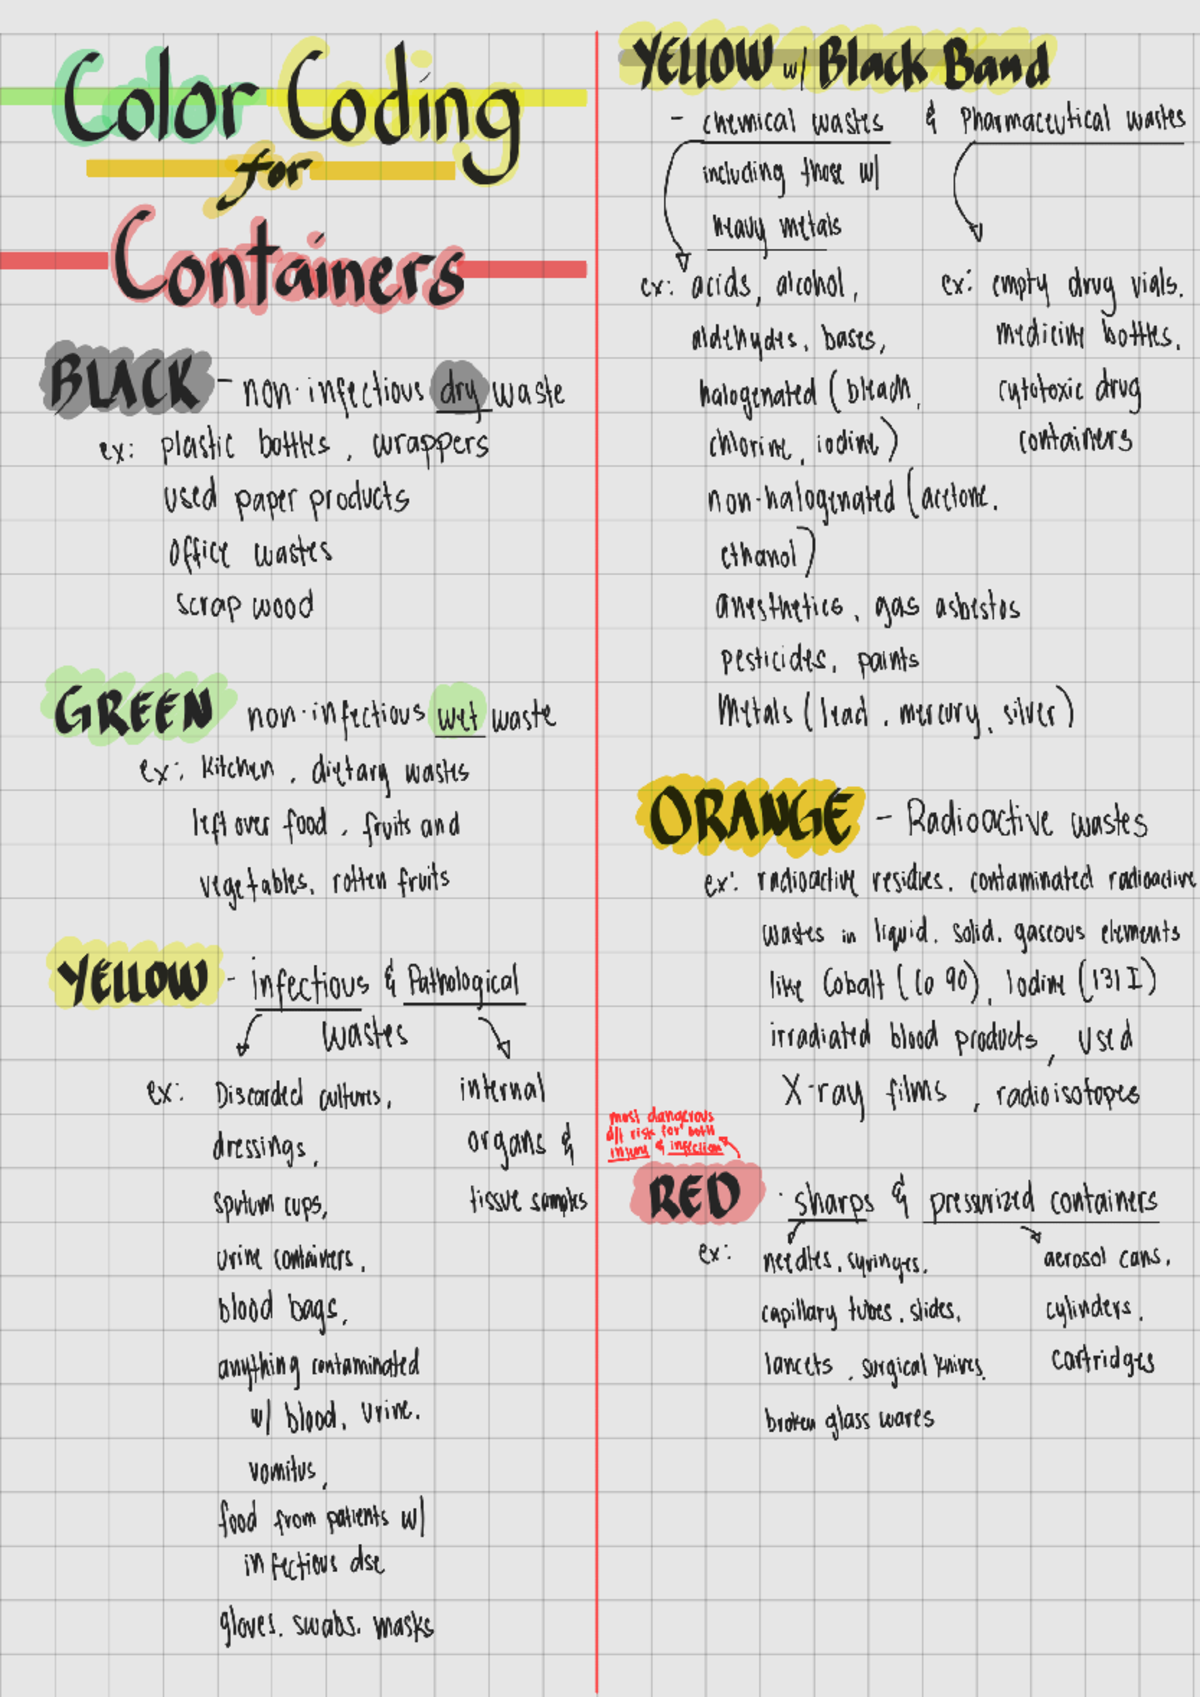 Color Coding
for
Containers
BLACK - non-infectious dry waste
ex: plastic bottles, wrappers
used paper products
office wastes
scrap wood
GREEN non-infectious wet waste
ex: kitchen, dietary wastes
left over food, fruits and
vegetables, rotten fruits
YELLOW - infectious & Pathological
wastes
ex: Discarded cultures,
dressings,
sputum cups,
urine containers,
blood bags,
anything contaminated
w/ blood, urine,
vomitus,
food from patients w/
infectious dse
gloves, swabs, masks
internal
organs &
tissue samples
YELLOW w/ Black Band
- chemical wastes & Pharmaceutical wastes
including those w/
heavy metals
ex: acids, alcohol,
aldehydes, bases,
halogenated (bleach,
chlorine, iodine)
non-halogenated (acetone,
ethanol)
anesthetics, gas asbestos
pesticides, paints
Metals (lead, mercury, silver)
ex: empty drug vials,
medicine bottles,
cytotoxic drug
containers
ORANGE - Radioactive wastes
ex: radioactive residues, contaminated radioactive
wastes in liquid, solid, gaseous elements
like Cobalt (Co 90), Iodine (131 I)
irradiated blood products, used
X-ray films, radioisotopes
most dangerous
d/t risk for both
injury & infection
RED - sharps & pressurized containers
ex: needles, syringes,
capillary tubes, slides,
lancets, surgical knives,
broken glass wares
aerosol cans,
cylinders,
cartridges